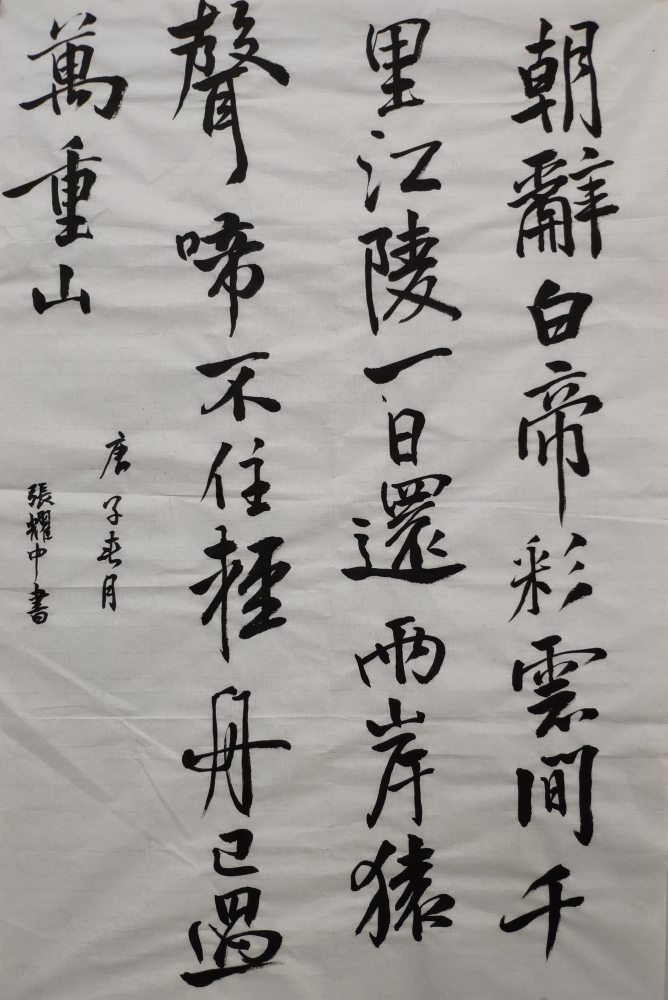 朝辭白帝彩雲間千
里江陵一日還兩岸猿
聲啼不住輕舟已過
萬重山
庚子春月
張耀中書